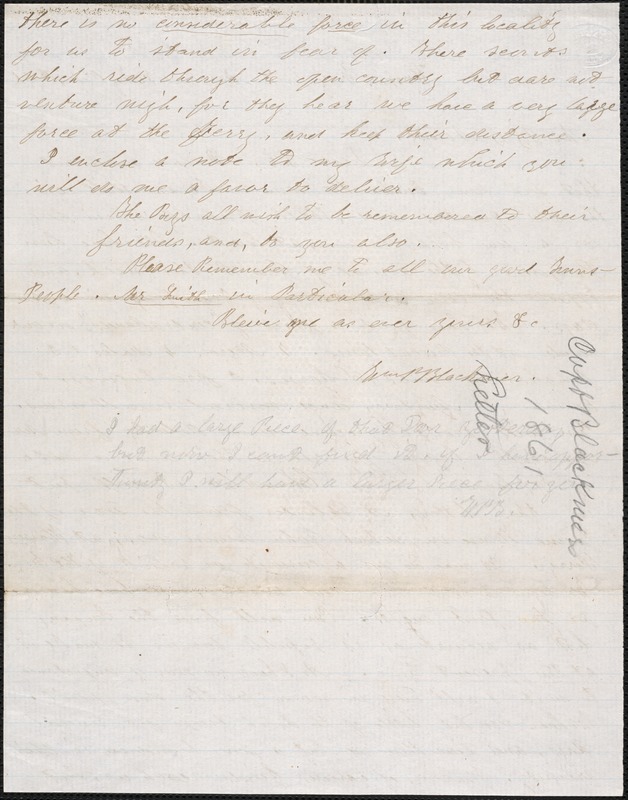 there is no considerable force in this locality
for us to stand in fear of. there scouts
which ride through the open country but dare not
venture nigh, for they hear we have a very large
force at the Ferry, and keep their distance.
I enclose a note to my wife which you
will do me a favor to deliver.
The Boys all wish to be remembered to their
friends, and, to you also.
Please Remember me to all our good Towns-
People. Mr Smith in Particular.
Bleive me as ever yours &c
Wm P Blackmer.
I had a large Piece of that Door
but now I cant find it, if I have oppor-
tunity I will have a larger Piece for you
WPB.
Capt Blackmer
1861
Letter